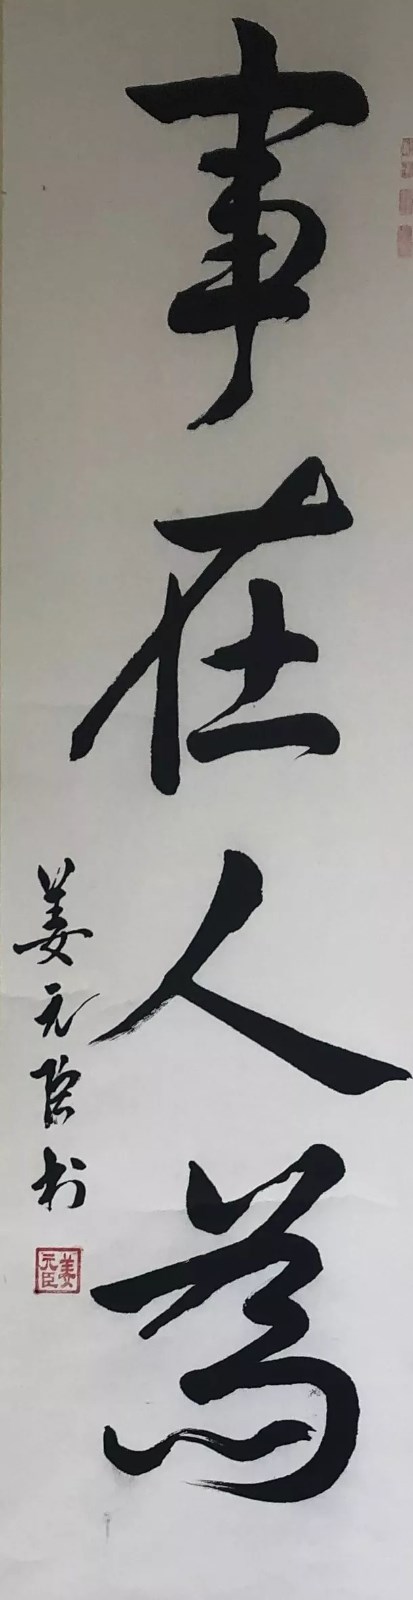 事在人為
姜元臣书
姜元臣